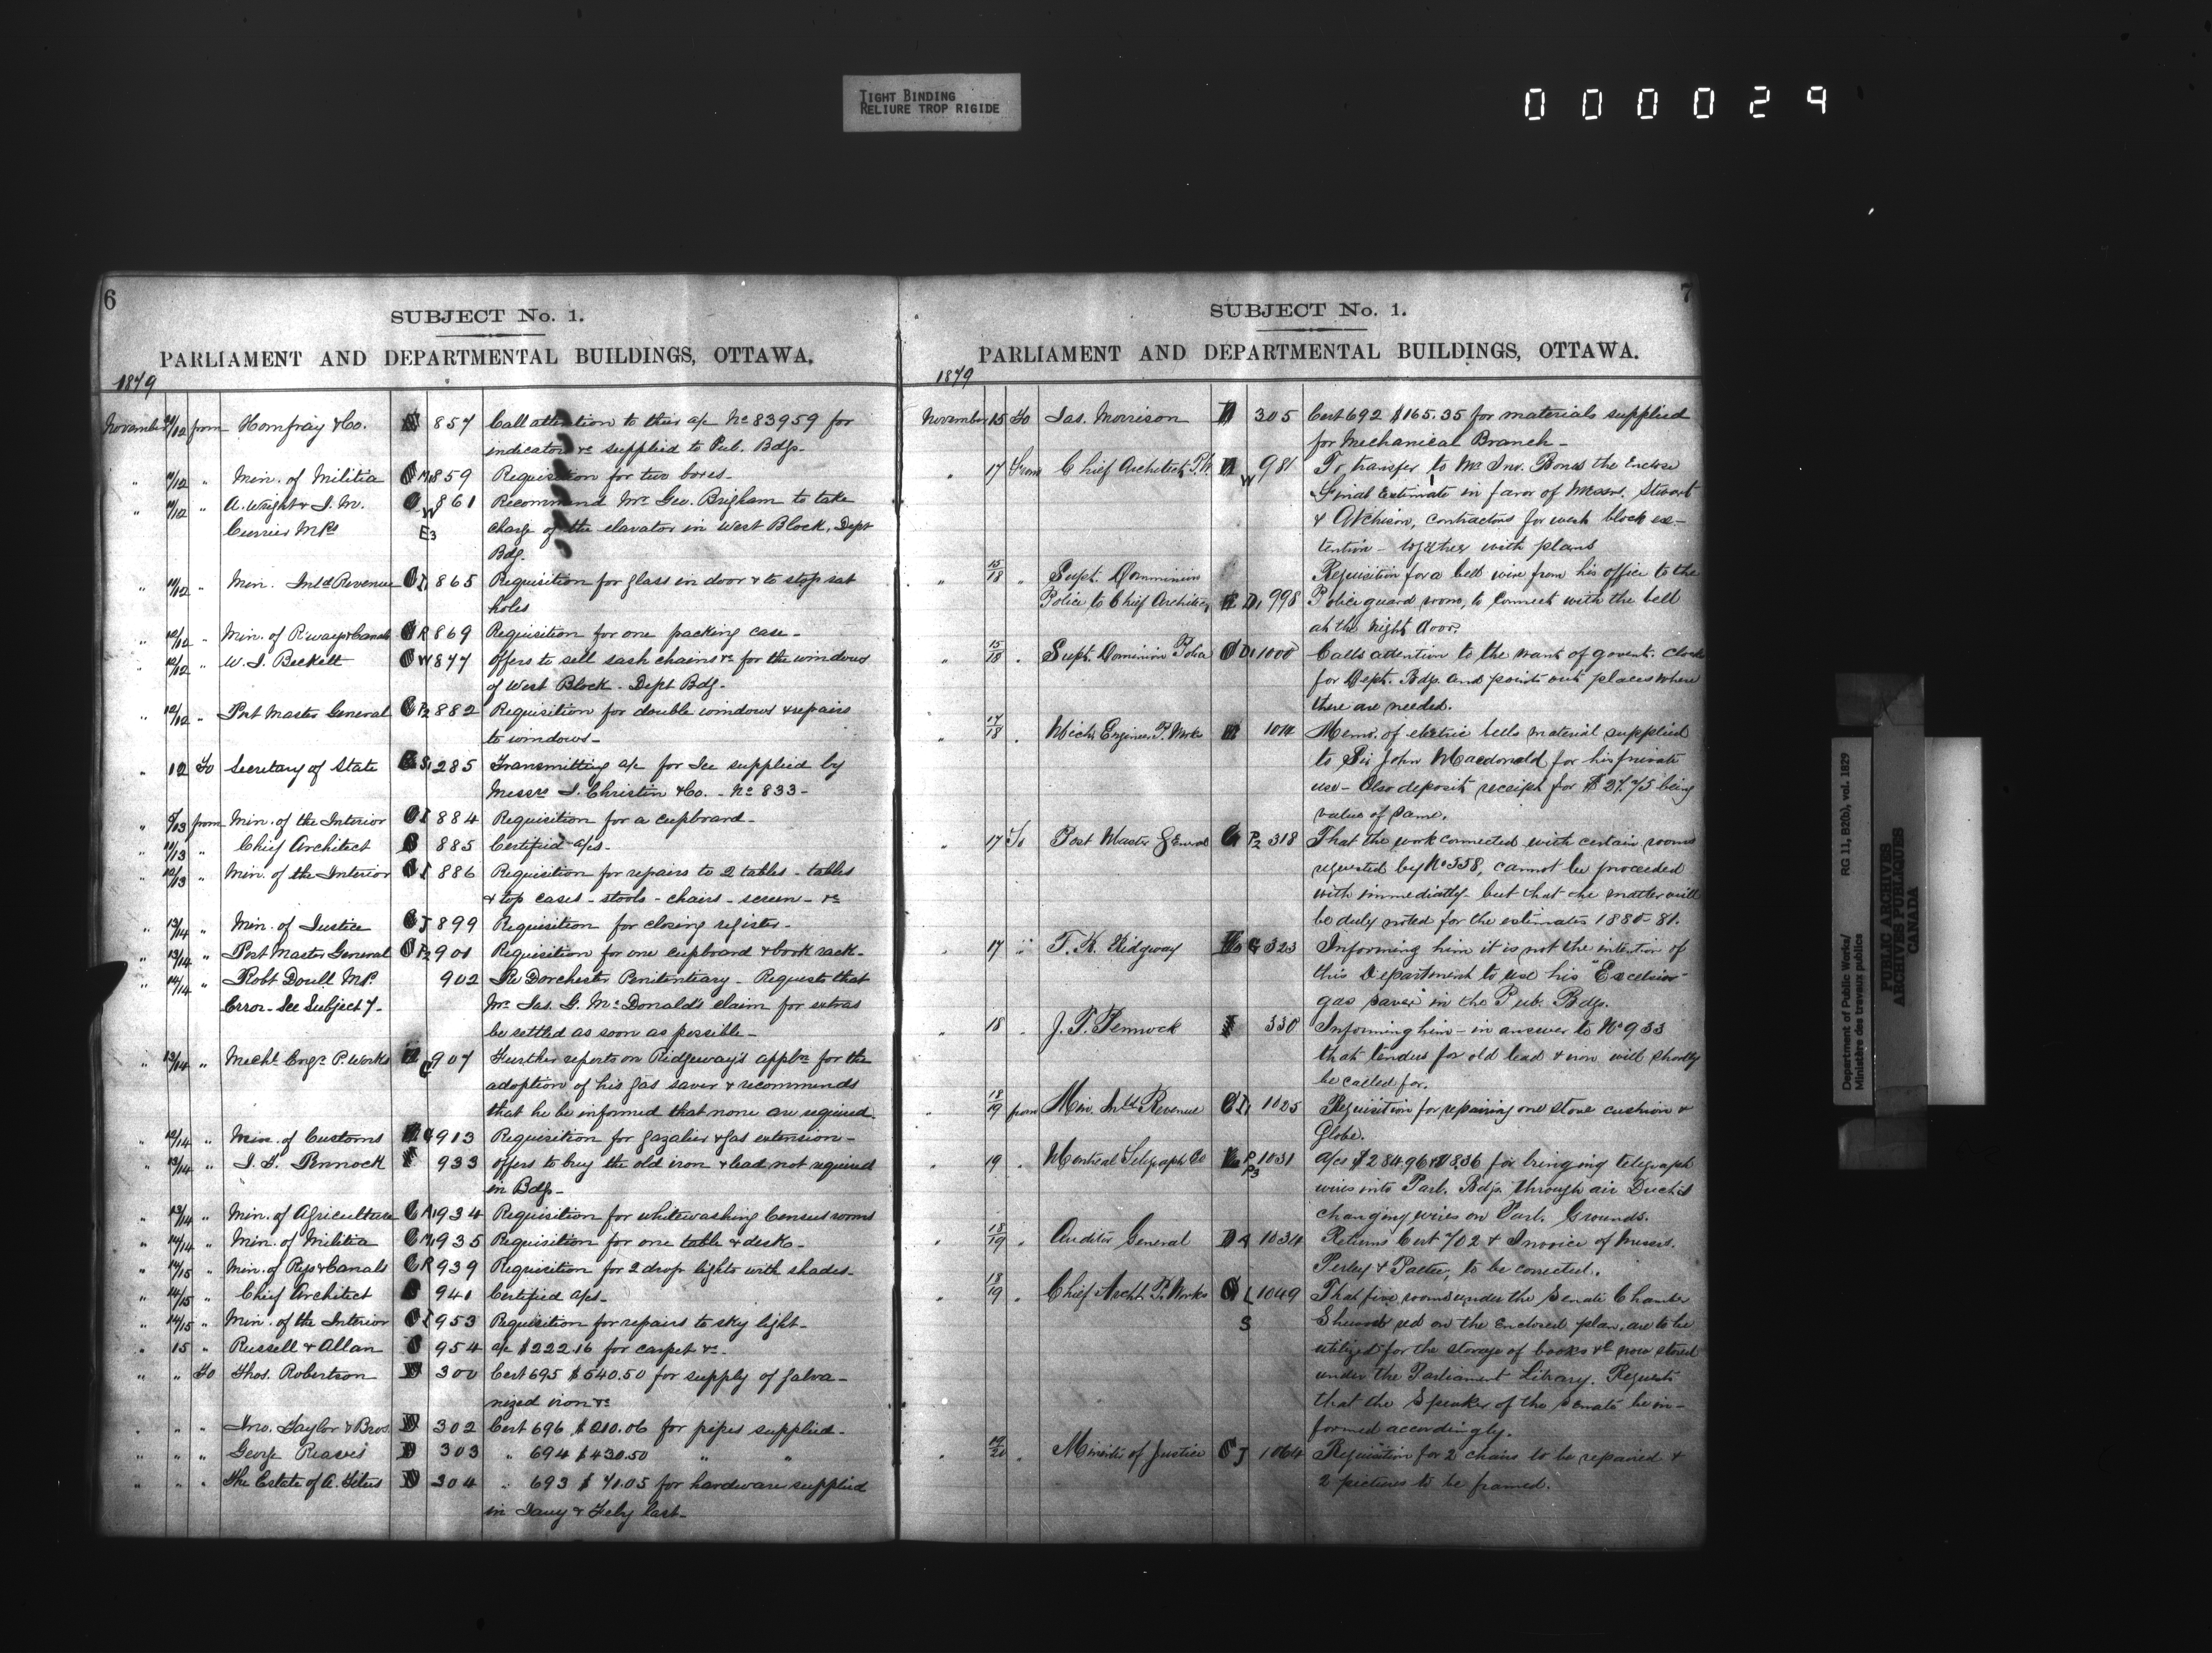 TIGHT BINDING
RELIURE TROP RIGIDE
000029
6
SUBJECT No. 1.
PARLIAMENT AND DEPARTMENTAL BUILDINGS, OTTAWA.
1879
November 11/12 from Homfray & Co. 857 Call attention to their a/c No 83959 for
indicator &c supplied to Pub. Bdgs.
" 11/12 " Min. of Militia C M 859 Requisition for two boxes.
" 11/12 " A. Wright & J. M. C W 861 Recommend Mr Geo. Brigham to take
Currier MPs E3 charge of the elavator in West Block, Dept
Bdg.
" 11/12 " Min. Inld Revenue C I1 865 Requisition for glass in door & to stop rat
holes
" 12/12 " Min. of R'ways & Canals C R 869 Requisition for one packing case.
" 12/12 " W. J. Beckett C W 877 offers to sell sash chains &c for the windows
of West Block. Dept Bdg.
" 12/12 " Post Master General C P2 882 Requisition for double windows & repairs
to windows.
" 12 To Secretary of State S1 285 Transmitting a/c for Ice supplied by
Messrs J. Christin & Co. - No 833 -
" from Min. of the Interior C I 884 Requisition for a cupboard.
" 11/13 " Chief Architect B 885 Certified a/cs.
" 12/13 " Min. of the Interior C I 886 Requisition for repairs to 2 tables - tables
& top cases - stools - chairs - screen - &c
" 13/14 " Min. of Justice C J 899 Requisition for closing register.
" 13/14 " Post Master General C P2 901 Requisition for one cupboard & book rack.
" 14/14 " Robt Doull M.P. 902 Re Dorchester Penitentiary - Requests that
Error - See Subject 7. Mr Jas. G. McDonald's claim for extras
be settled as soon as possible.
" 13/14 " Mechl Engr P. Works G 907 Further reports on Ridgeway's applon for the
adoption of his gas saver & recommends
that he be informed that none are required.
" 12/14 " Min. of Customs 913 Requisition for gazalier & gas extension.
" 13/14 " J. T. Pennock F 933 offers to buy the old iron & lead not required
in Bdgs.
" 13/14 " Min. of Agriculture C A1 934 Requisition for whitewashing Census rooms
" 14/14 " Min. of Militia C M 935 Requisition for one table & desks.
" 14/15 " Min. of Rys & Canals C R 939 Requisition for 2 drop lights with shades.
" 14/15 " Chief Architect B 941 Certified a/cs.
" 14/15 " Min. of the Interior C I 953 Requisition for repairs to sky light.
" 15 " Russell & Allan C 954 a/c $222.16 for carpet &c.
" " To Thos. Robertson D 300 Cert 695 $540.50 for supply of galva-
nized iron &c
" " " Jno. Taylor & Bros. D 302 Cert 696 $210.06 for pipes supplied.
" " " George Reaves D 303 " 694 $430.50 " "
" " " The Estate of A. Titus D 304 " 693 $71.05 for hardware supplied
in Jany & Feby last.
7
SUBJECT No. 1.
PARLIAMENT AND DEPARTMENTAL BUILDINGS, OTTAWA.
1879
November 15 To Jas. Morrison D 305 Cert 692 $165.35 for materials supplied
for Mechanical Branch.
" 17 From Chief Architect P.W. W 981 To transfer to Mr Jno. Bones the Enclose
Final Estimate in favor of Messrs. Stewart
& Atchison, contractors for west block ex-
tention - together with plans
" 15/18 " Supt. Dominion Requisition for a bell wire from his office to the
Police to Chief Architect D1 998 Police guard room, to connect with the bell
at the night door.
" 15/18 . Supt. Dominion Police C D1 1000 Calls attention to the want of govent. clocks
for Dept. Bdgs. and points out places where
there are needed.
" 17/18 . Mechl Engineer P. Works 1014 Memo. of electric bells material supplied
to Sir John Macdonald for his private
use - Also deposit receipt for $27.75 being
value of same.
" 17 To Post Master General P2 318 That the work connected with certain rooms
requested by No 558, cannot be proceeded
with immediatly - but that the matter will
be duly noted for the estimates 1880-81.
" 17 " T. K. Ridgway G 323 Informing him it is not the intention of
this Department to use his "Excelsior
gas saver" in the Pub. Bdgs.
" 18 . J. T. Pennock F 330 Informing him - in answer to No 933
that tenders for old lead & iron will shortly
be called for.
" 18/19 from Min. Inld Revenue C I1 1025 Requisition for repairing one stove cushion &
Globe.
" 19 . Montreal Telegraph Co P 1031 a/cs $284.96 for bringing telegraph
P3 wires into Parl. Bdgs. through air Ducts
changing wires on Parl. Grounds.
" 18/19 . Auditor General D A 1034 Returns Cert 702 & Invoice of Messrs.
Perley & Pattee, to be corrected.
" 18/19 . Chief Archt. P. Works L 1049 That five rooms under the Senate Chamber
S Shewed red on the Enclosed plan, are to be
utilized for the storage of books &c now stored
under the Parliament Library. Requests
that the Speaker of the Senate be in-
formed accordingly.
" 19/20 . Minister of Justice C J 1064 Requisition for 2 chairs to be repaired &
2 pictures to be framed.
Department of Public Works/ RG 11, B2(b), vol. 1829
Ministère des travaux publics
PUBLIC ARCHIVES
ARCHIVES PUBLIQUES
CANADA